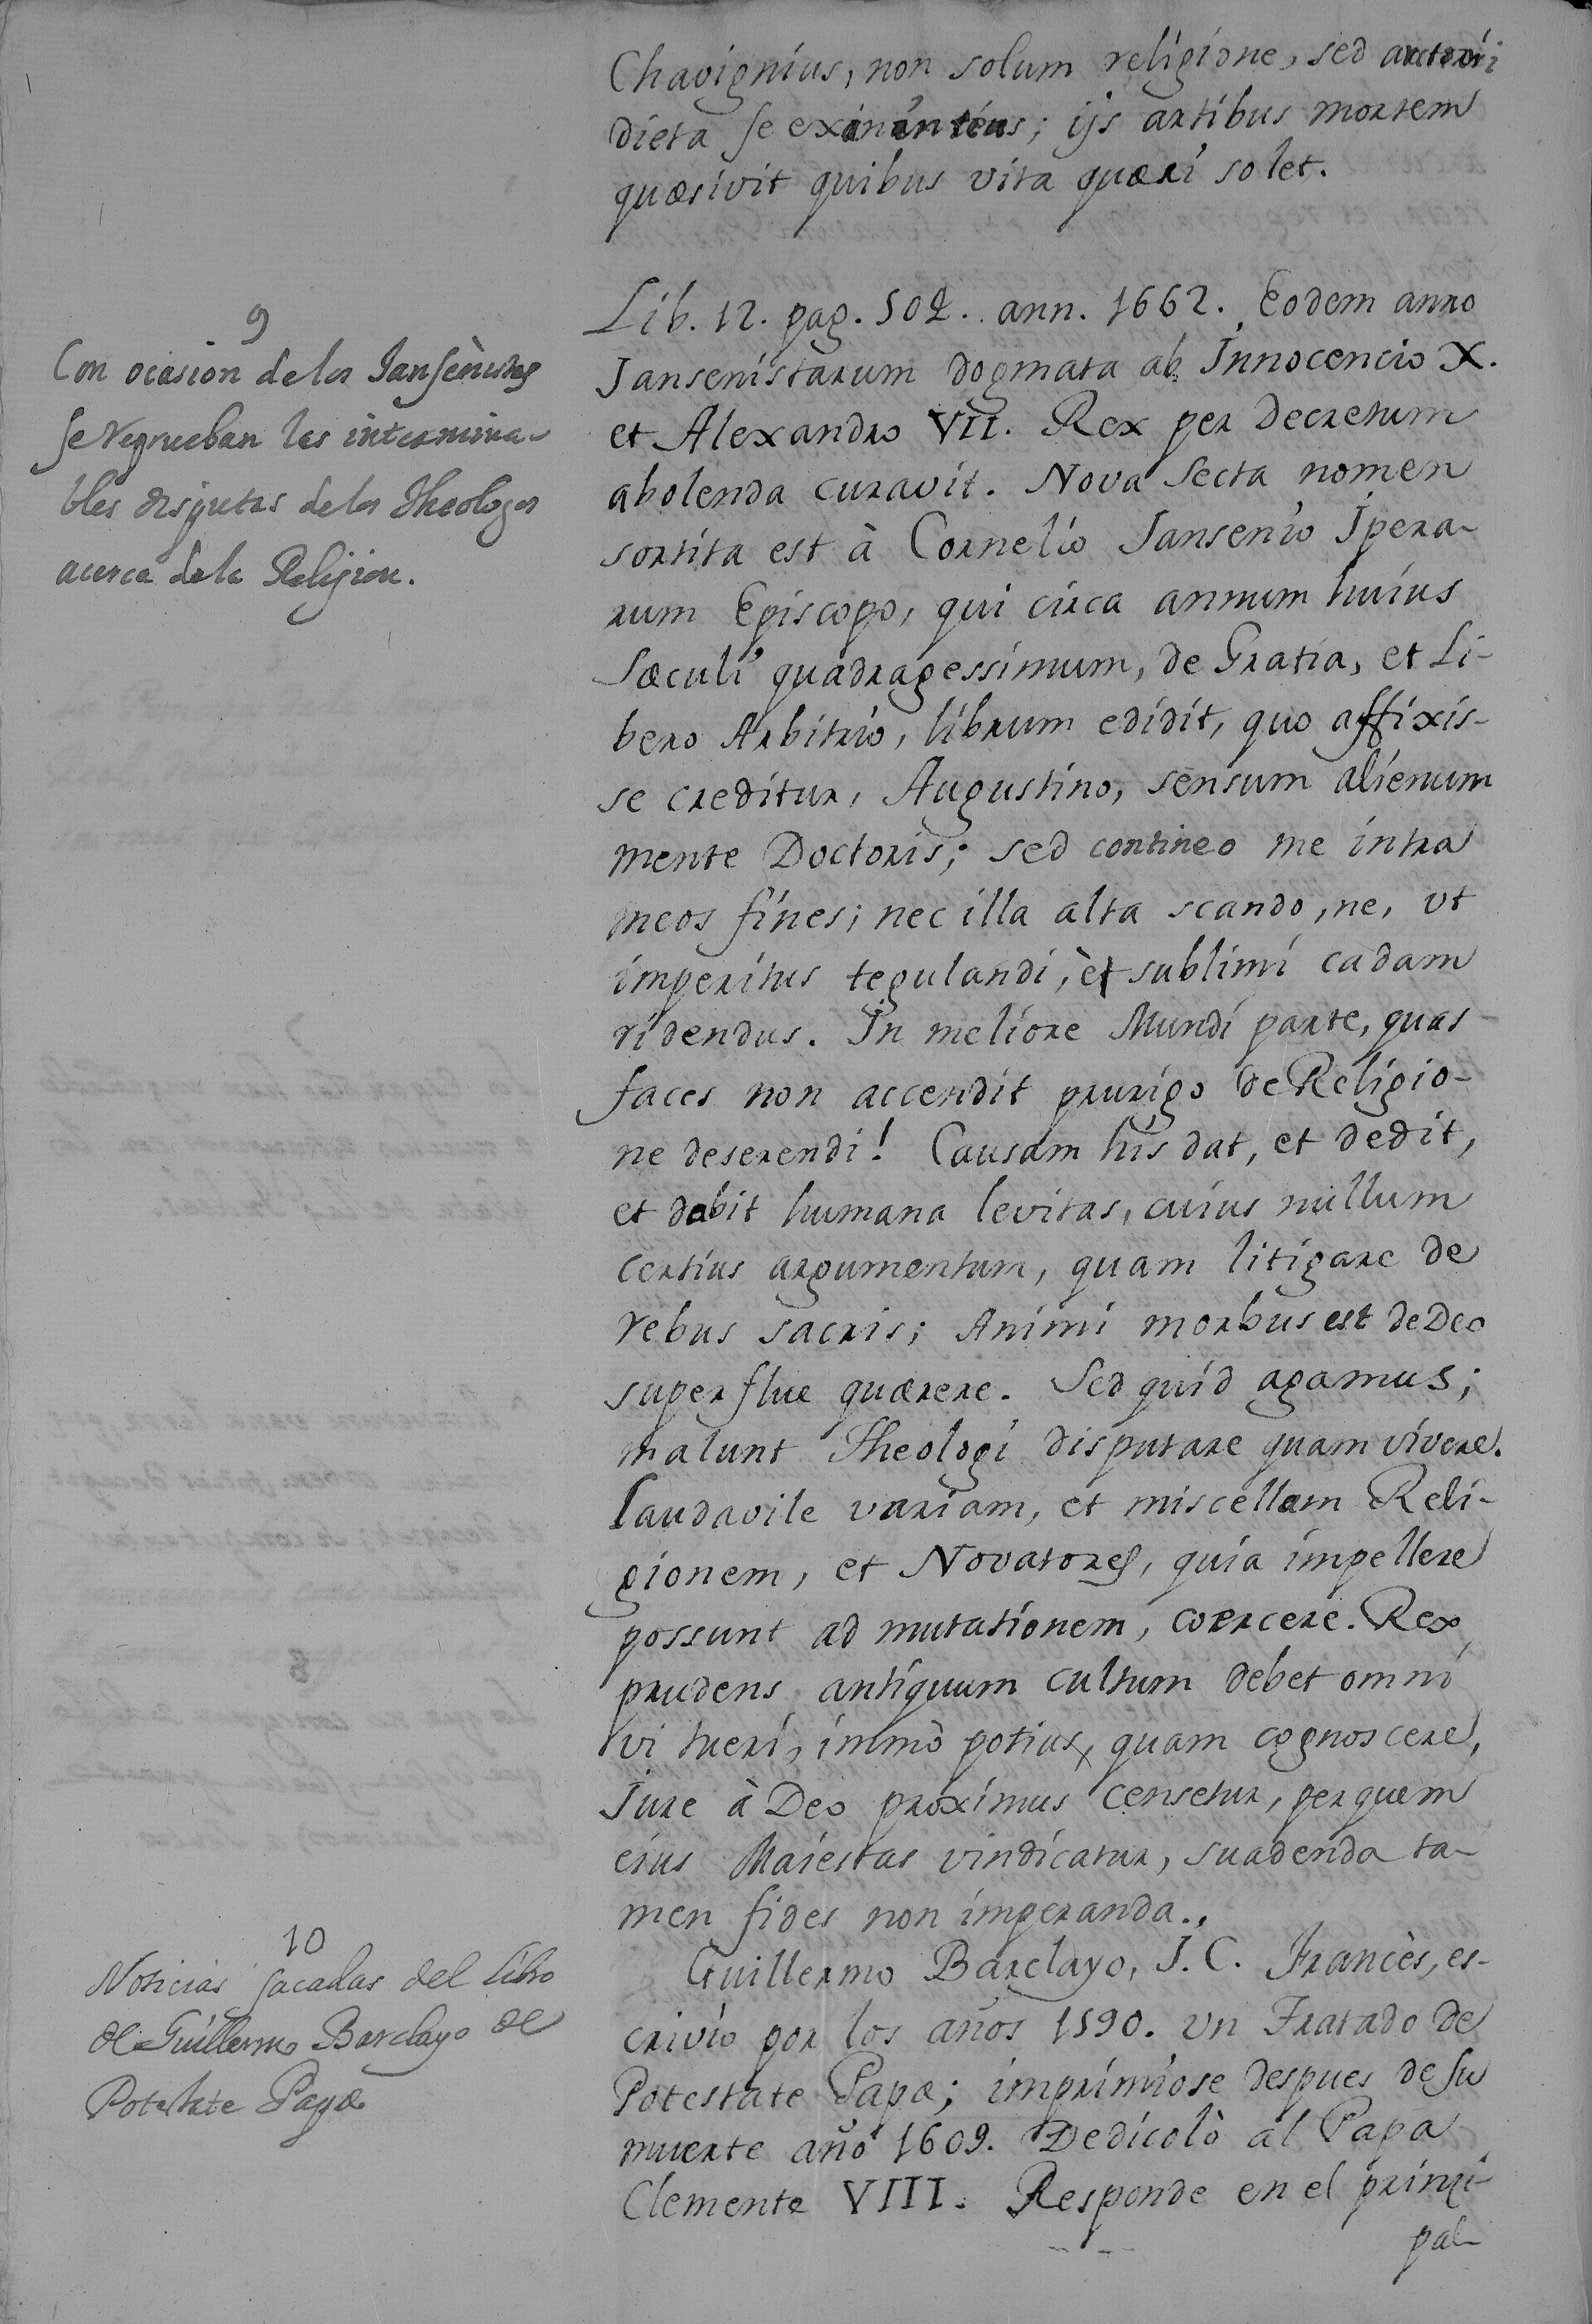 Chavignius, non solum religione, sed
dieta se ; ijs artibus mortem
quæsivit quibus vita quæri solet.
9
Con ocasion de los Jansenistas
se reprueban las intermina-
bles disputas de los Theologos
acerca de la Religion.
Lib. 12. pag. 502. ann. 1662. Eodem anno
Jansenistarum dogmata ab Innocencio X.
et Alexandro VII. Rex per Decretum
abolenda curavit. Nova Secta nomen
sortita est à Cornelio Jansenio Ipera-
rum Episcopo, qui circa annum huius
Sæculi quadragessimum, de Gratia, et Li-
bero Arbitrio, librum edidit, quo affixis-
se creditur, Augustino, sensum alienum
mente Doctoris; sed contineo me intra
meos fines; nec illa alta scando, ne, vt
imperitus tegulandi, è sublimi cadam
ridendus. In meliore Mundi parte, quas
faces non accendit prurigo de Religio-
ne deserendi! Causam his dat, et dedit,
et dabit humana levitas, cuius nullum
certius argumentum, quam litigare de
rebus sacris; Animi morbus est de Deo
superflue quærere. Sed quid agamus;
malunt Theologi disputare quam vivere.
Laudavile variam, et miscellam Reli-
gionem, et Novatores, quia impellere
possunt ad mutationem, coercere. Rex
prudens antiquum cultum debet omni
vi tueri, immò potius, quam cognoscere,
Jure à Deo proximus censetur, per quem
eius Maiestas vindicatur, suadenda ta-
men fides non imperanda.,
10
Noticias sacadas del libro
de Guillermo Barclayo de
Potestate Papæ
Guillermo Barclayo, J. C. Francès, es-
crivio por los años 1590. vn Tratado de
Potestate Papæ; imprimiose despues de su
muerte año 1609. Dedicolò al Papa
Clemente VIII. Responde en el princi-
pal